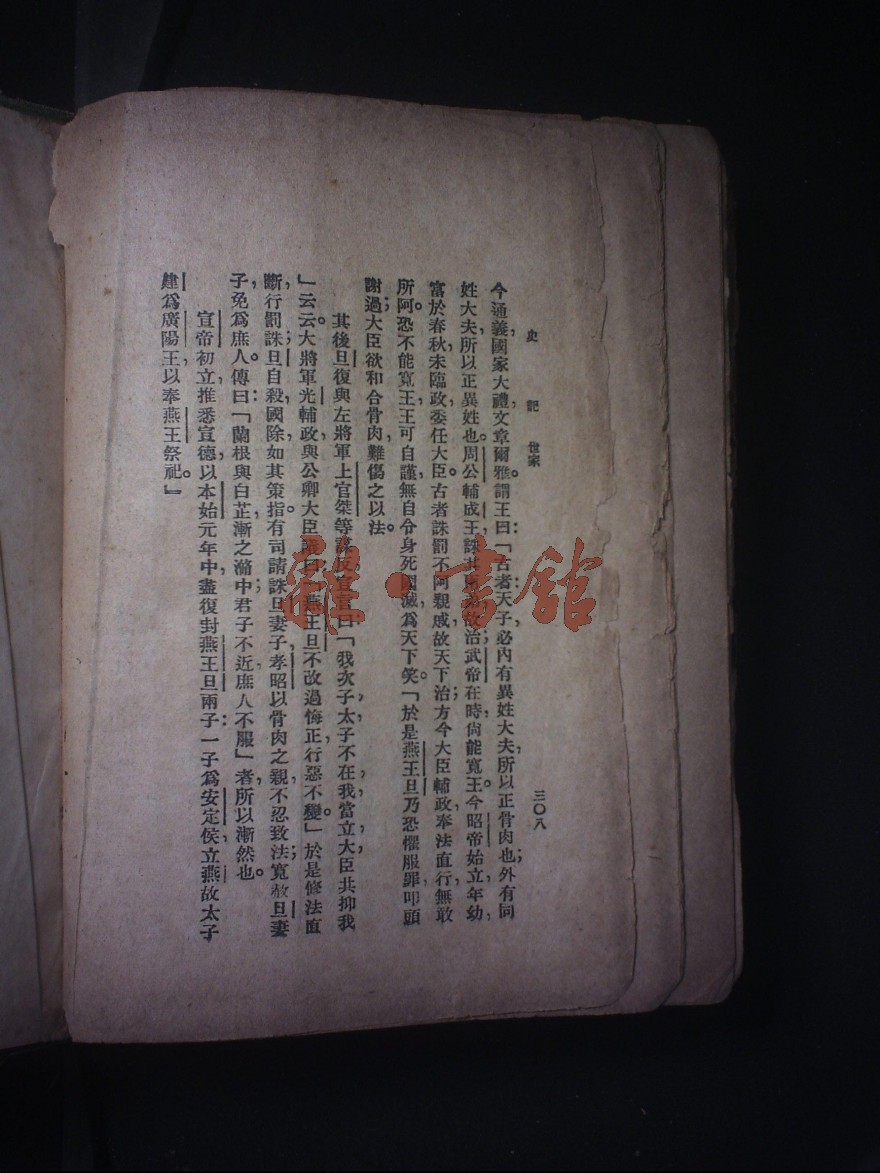 史記 世家 三〇八
今通義國家大禮文章爾雅。謂王曰：「古者天子必內有異姓大夫，所以正骨肉也；外有同
姓大夫，所以正異姓也。周公輔成王，誅其兩弟，故治；武帝在時，尙能寬王。今昭帝始立，年幼，
富於春秋，未臨政，委任大臣。古者誅罰不阿親戚，故天下治；方今大臣輔政，奉法直行，無敢
所阿。恐不能寬王。王可自謹，無自令身死國滅，爲天下笑。「於是燕王旦乃恐懼服罪，叩頭
謝過；大臣欲和合骨肉，難傷之以法。
其後旦復與左將軍上官桀等謀反，宣言曰：「我次子，太子不在，我當立，大臣共抑我
」云云。大將軍光輔政，與公卿大臣議曰：「燕王旦不改過悔正，行惡不變。」於是修法直
斷，行罰誅；旦自殺，國除，如其策指。有司請誅旦妻子，孝昭以骨肉之親，不忍致法；寬赦旦妻
子，免爲庶人。傳曰：「蘭根與白芷，漸之滫中，君子不近，庶人不服」者，所以漸然也。
宣帝初立，推悉宣德，以本始元年中，盡復封燕王旦兩子：一子爲安定侯，立燕故太子
建爲廣陽王，以奉燕王祭祀。」
雜·書館